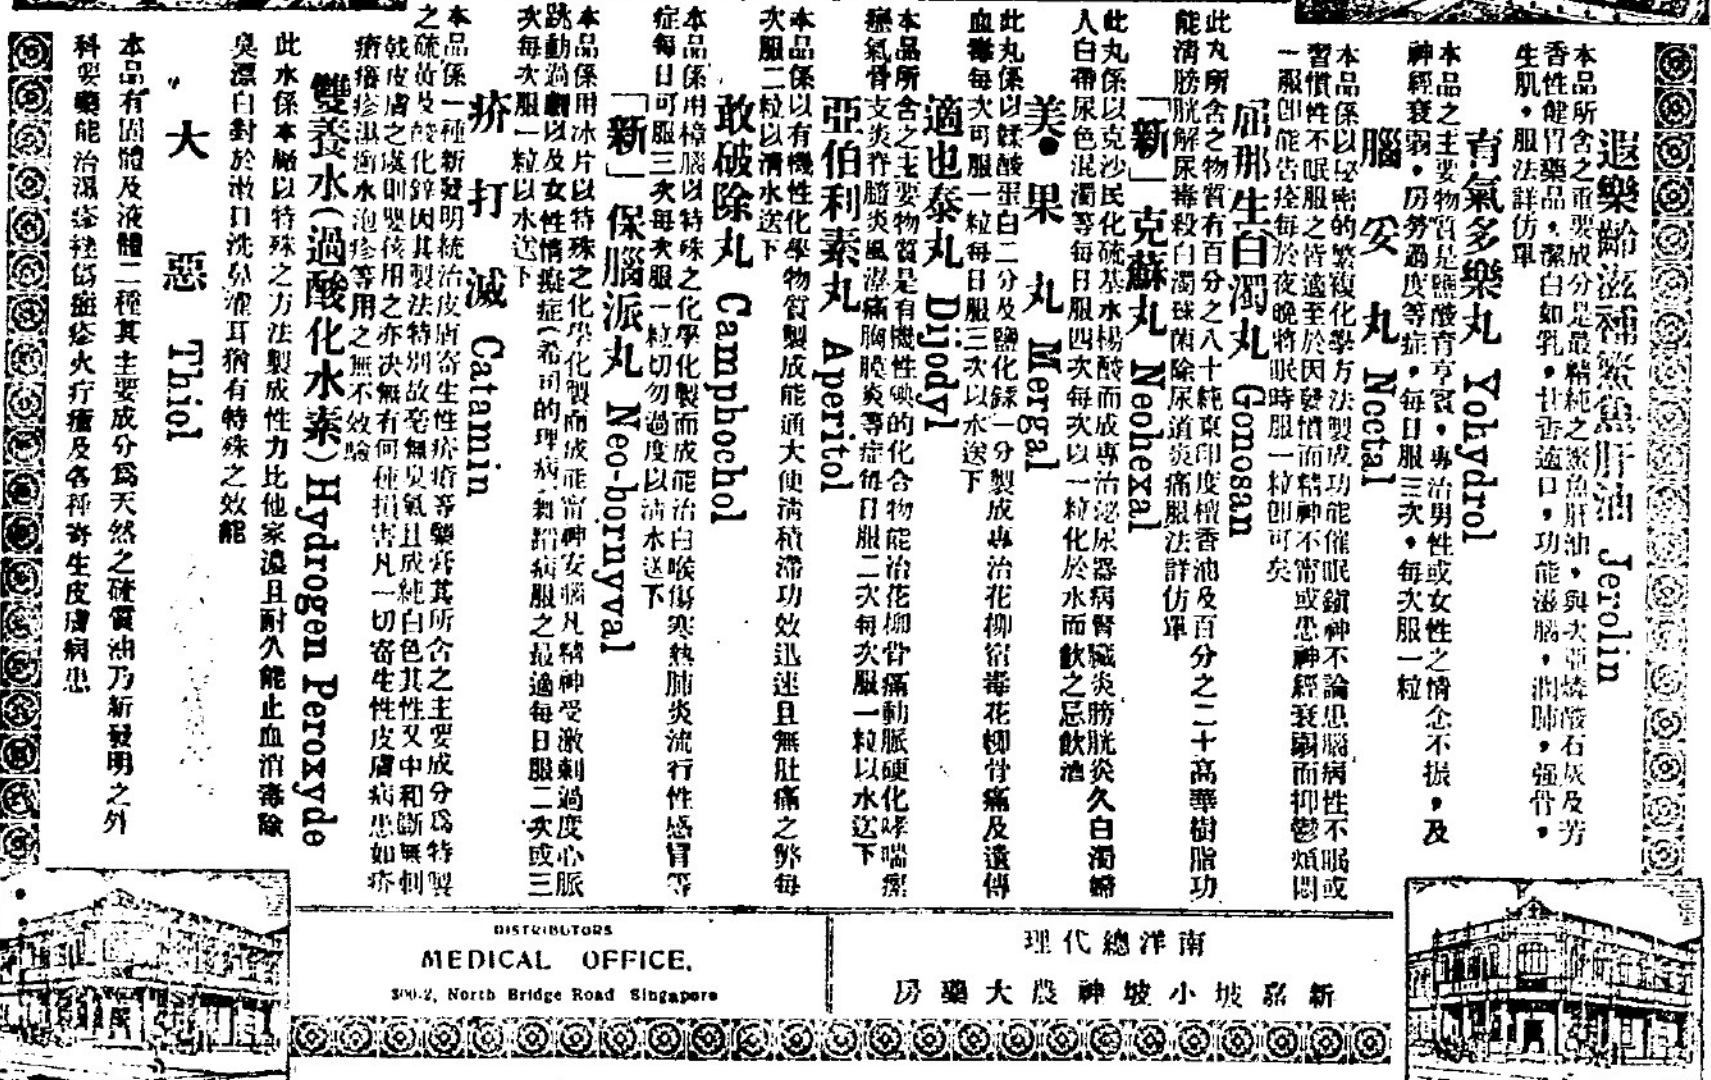 遐樂齡滋補鰵魚肝油 Jerolin
本品所含之重要成分是最精純之鰵魚肝油，與次亞燐酸石灰及芳
香性健胃藥品，潔白如乳，甘香適口，功能滋腦，潤肺，强骨，
生肌，服法詳仿單
育氣多樂丸 Yohydrol
本品之主要物質是鹽酸育亨賓，專治男性或女性之情念不振，及
神經衰弱，房勞過度等症，每日服三次，每次服一粒
腦安丸 Nectal
本品係以秘密的繁複化學方法製成功能催眠鎮神不論患腦病性不眠或
習慣性不眠服之皆適至於因發憤而精神不甯或患神經衰弱而抑鬱煩悶
一服卽能告痊每於夜晚將眠時服一粒卽可矣
屈那生白濁丸 Gonosan
此丸所含之物質有百分之八十純東印度檀香油及百分之二十高華樹脂功
能清膀胱解尿毒殺白濁球菌除尿道炎痛服法詳仿單
「新」克蘇丸 Neohexal
此丸係以克沙民化硫基水楊酸而成專治泌尿器病腎臟炎膀胱炎久白濁婦
人白帶尿色混濁等每日服四次每次以一粒化於水而飲之忌飲酒
美果丸 Mergal
此丸係以鍒酸蛋白二分及鹽化鍒一分製成專治花柳宿毒花柳骨痛及遺傳
血毒每次可服一粒每日服三次以水送下
適也泰丸 Dijodyl
本品所含之主要物質是有機性碘的化合物能治花柳骨痛動脈硬化哮喘瘰
癧氣骨支炎脊髓炎風濕痛胸膜炎等症每日服二次每次服一粒以水送下
亞伯利素丸 Aperitol
本品係以有機性化學物質製成能通大便淸積滯功效迅速且無肚痛之弊每
次服二粒以清水送下
敢破除丸 Camphochol
本品係用樟腦以特殊之化學化製而成能治白喉傷寒熱肺炎流行性感冒等
症每日可服三次每次服一粒切勿過度以淸水送下
「新」保腦派丸 Neo-bornyval
本品係用冰片以特殊之化學化製而成能甯神安腦凡精神受激刺過度心脈
跳動過劇以及女性情癡症(希司的理病)舞蹈病服之最適每日服二次或三
次每次服一粒以水送下
疥打滅 Catamin
本品係一種新發明統治皮膚寄生性疥瘡等藥膏其所含之主要成分爲特製
之硫黃及酸化鋅因其製法特別故毫無臭氣且成純白色其性又中和斷無刺
戟皮膚之虞則嬰孩用之亦決無有何種損害凡一切寄生性皮膚病患如疥
瘡瘡疹濕癬水泡疹等用之無不效驗
雙養水(過酸化水素) Hydrogen Peroxyde
此水係本廠以特殊之方法製成性力比他家濃且耐久能止血消毒除
臭漂白對於漱口洗鼻灌耳猶有特殊之效能
大惡 Thiol
本品有固體及液體二種其主要成分爲天然之硫質油乃新發明之外
科要藥能治濕疹火疔瘡及各種寄生皮膚病患
DISTRIBUTORS
MEDICAL OFFICE.
North Bridge Road Singapore
理代總洋南
房藥大農神坡小坡嘉新